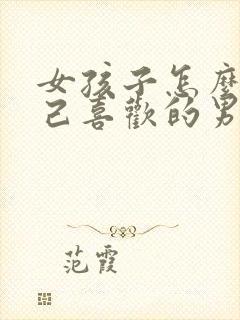 女孩子怎麼
己喜歡的男
范霞